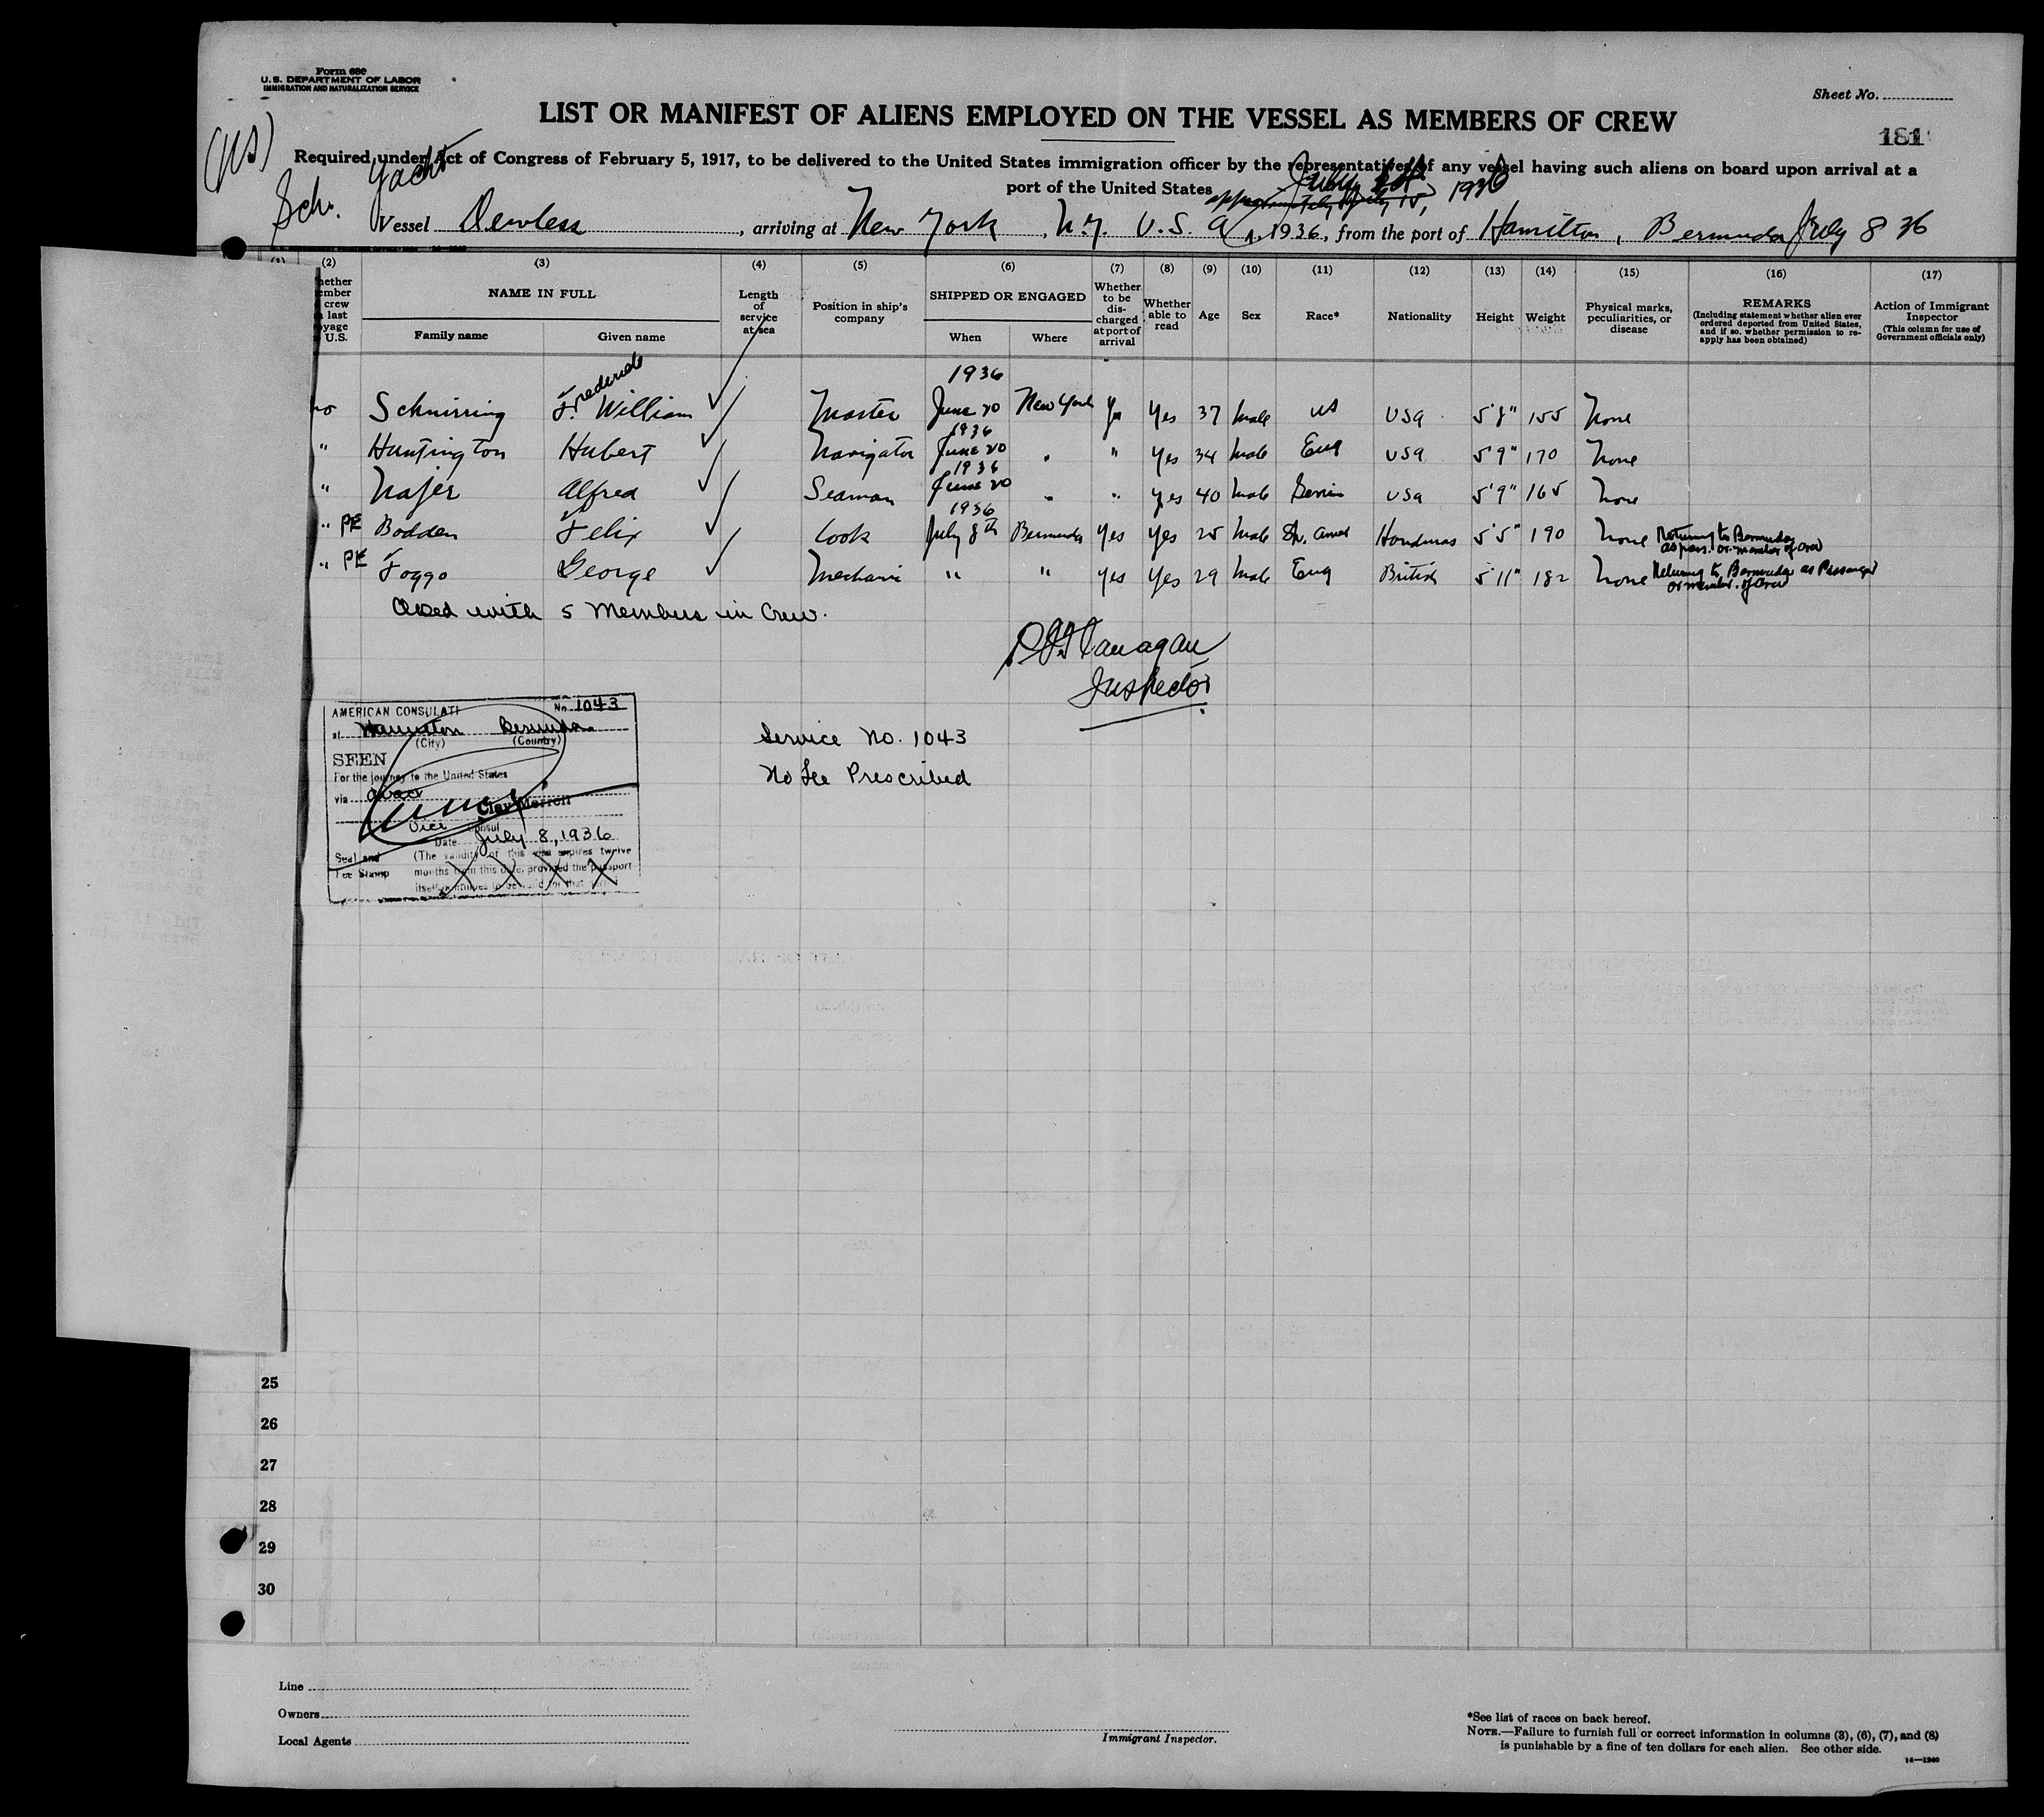 Form 680
U.S. DEPARTMENT OF LABOR
IMMIGRATION AND NATURALIZATION SERVICE
Sheet No.
LIST OR MANIFEST OF ALIENS EMPLOYED ON THE VESSEL AS MEMBERS OF CREW
181
(US)
Required under Act of Congress of February 5, 1917, to be delivered to the United States immigration officer by the representatives of any vessel having such aliens on board upon arrival at a
port of the United States
approximately July 15, 1936
Sch. Yacht
Vessel , arriving at New York, N.Y. U.S.A., 1936, from the port of Hamilton, Bermuda July 8 36
(1) (2) (3) (4) (5) (6) (7) (8) (9) (10) (11) (12) (13) (14) (15) (16) (17)
hether ember crew last yage U.S.
NAME IN FULL
Family name Given name
Length of service at sea
Position in ship's company
SHIPPED OR ENGAGED
When Where
Whether to be discharged at port of arrival
Whether able to read
Age Sex Race* Nationality Height Weight
Physical marks, peculiarities, or disease
REMARKS
(Including statement whether alien ever ordered deported from United States, and if so, whether permission to re-apply has been obtained)
Action of Immigrant Inspector
(This column for use of Government officials only)
Frederick 1936
no Schnirring F. William Master June 20 New York Yes Yes 37 Male US USA 5'8" 155 None
1936
" Huntington Hubert Navigator June 20 " " Yes 34 Male Eng USA 5'9" 170 None
1936
" Alfred Seaman June 20 " " Yes 40 Male USA 5'9" 165 None
1936
" PE Bodden Felix Cook July 8th Bermuda Yes Yes 25 Male Sp. Amer Honduras 5'5" 190 None Returning to Bermuda as pass. or member of crew
" PE Foggo George Mechanic " " Yes Yes 29 Male Eng British 5'11" 182 None Returning to Bermuda as Passenger or member of crew
Closed with 5 Members in Crew.
Flanagan
Inspector
AMERICAN CONSULATE No. 1043
at Hamilton Bermuda
(City) (Country)
SEEN
For the journey to the United States
via
Clay Merrell
Vice Consul
Date July 8, 1936
Seal and Fee Stamp
(The validity of this visa expires twelve months from this date, provided the passport itself continues to be valid for that
Service No. 1043
No Fee Prescribed
25
26
27
28
29
30
Line
Owners
Local Agents
Immigrant Inspector.
*See list of races on back hereof.
NOTE.—Failure to furnish full or correct information in columns (3), (6), (7), and (8)
is punishable by a fine of ten dollars for each alien. See other side.
14—1240